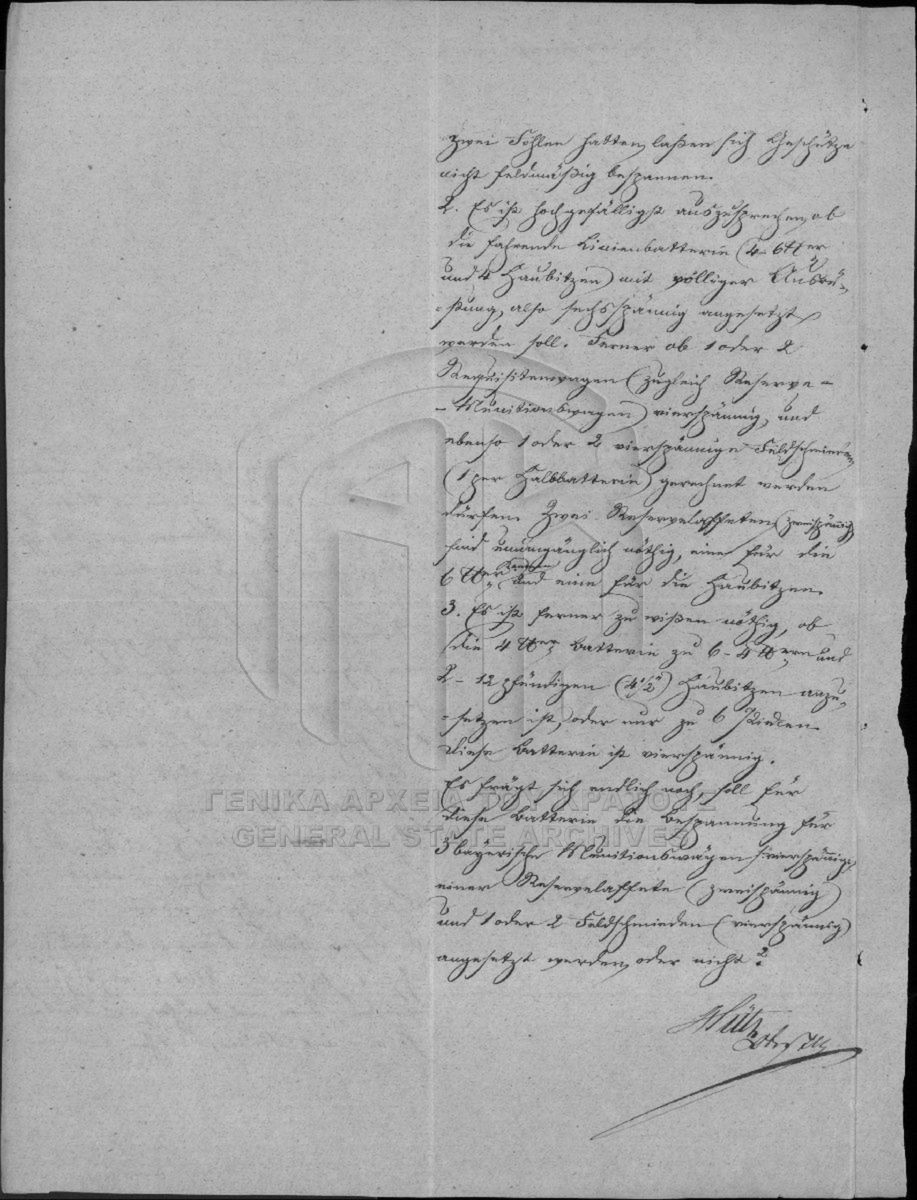 zwei Fohlen hatten, laßen sich Geschütze
nicht feldmäßig bespannen.
2. Es ist hochgefälligst auszusprechen, ob
die fahrende Linienbatterie (4-6 ℔er
und 4 Haubitzen) mit völliger Ausrü-
-stung, also sechsspännig angesetzt
werden soll. Ferner ob 1 oder 2
Requisitenwagen (zugleich Reserve-
-Munitionswagen) vierspännig, und
ebenso 1 oder 2 vierspännige Feldschmieden
(1 per Halbbatterie) gerechnet werden
dürfen. Zwei Reservelaffeten (zweispännig)
sind unumgänglich nöthig, eine für die
6 ℔er Kanonen und eine für die Haubitzen.
3. Es ist ferner zu wißen nöthig, ob
die 4 ℔er Batterie zu 6-4 ℔ern und
2-12 pfündigen (4 1/2") Haubitzen anzu-
-setzen ist, oder nur zu 6 Piecen.
Diese Batterie ist vierspännig.
Es frägt sich endlich noch, soll für
diese Batterie die Bespannung für
3 bayerische Munitionswägen (vierspännig)
einer Reservelaffete (zweispännig)
und 1 oder 2 Feldschmieden (vierspännig)
angesetzt werden, oder nicht?
ΓΕΝΙΚΑ ΑΡΧΕΙΑ ΤΟΥ ΚΡΑΤΟΥΣ
GENERAL STATE ARCHIVES